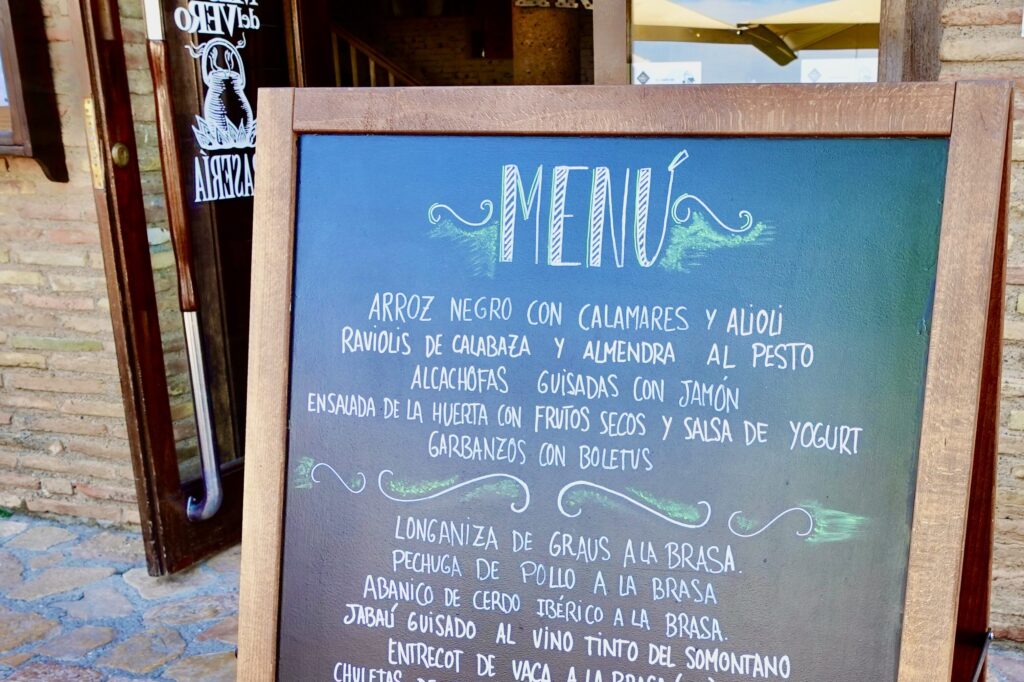 del VERO
MENÚ
ARROZ NEGRO CON CALAMARES Y ALIOLI
RAVIOLIS DE CALABAZA Y ALMENDRA AL PESTO
ALCACHOFAS GUISADAS CON JAMÓN
ENSALADA DE LA HUERTA CON FRUTOS SECOS Y SALSA DE YOGURT
GARBANZOS CON BOLETUS
LONGANIZA DE GRAUS A LA BRASA.
PECHUGA DE POLLO A LA BRASA
ABANICO DE CERDO IBÉRICO A LA BRASA.
JABALÍ GUISADO AL VINO TINTO DEL SOMONTANO
ENTRECOT DE VACA A LA BRASA
CHULETAS DE